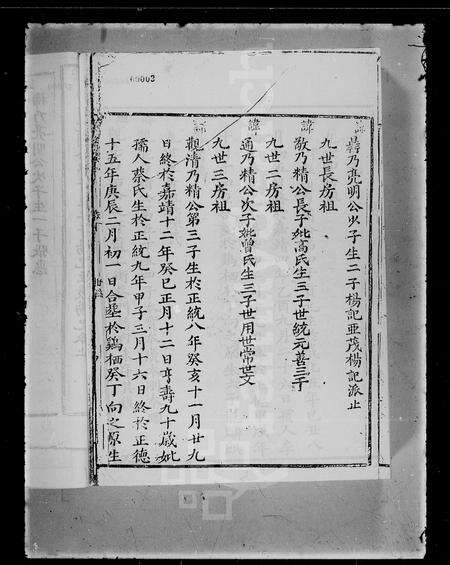 00002
諱
昺乃亮明公次子生二子楊記亞茂楊記派止
九世長房祖
諱
敬乃精公長子妣高氏生三子世統元善三子
九世二房祖
諱
通乃精公次子妣曾氏生三子世用世常世文
九世三房祖
諱
觀清乃精公第三子生於正統八年癸亥十一月廿九
日終於嘉靖十二年癸巳正月十二日享壽九十歲妣
孺人蔡氏生於正統九年甲子三月十六日終於正德
十五年庚辰二月初一日合塟於鷄栖癸丁向之原生